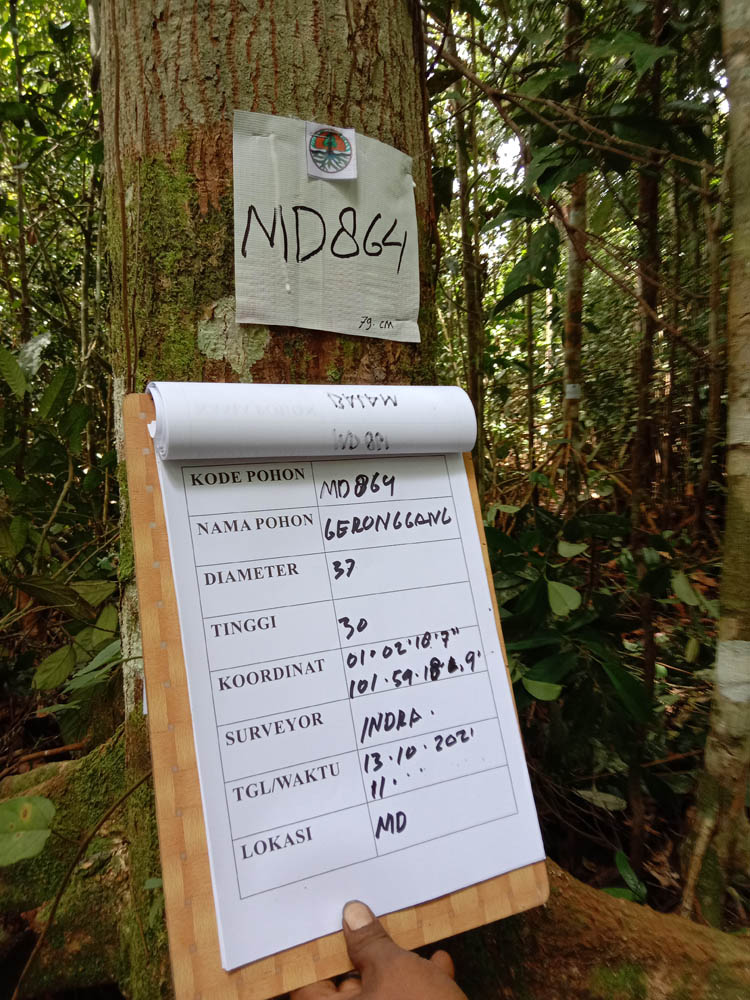 MD864
79. cm
KODE POHON MD864
NAMA POHON GERONGGANG
DIAMETER 37
TINGGI 30
KOORDINAT 01.02'18'7"
101.59.18
SURVEYOR INDRA.
TGL/WAKTU 13.10.2021
11...
LOKASI MD